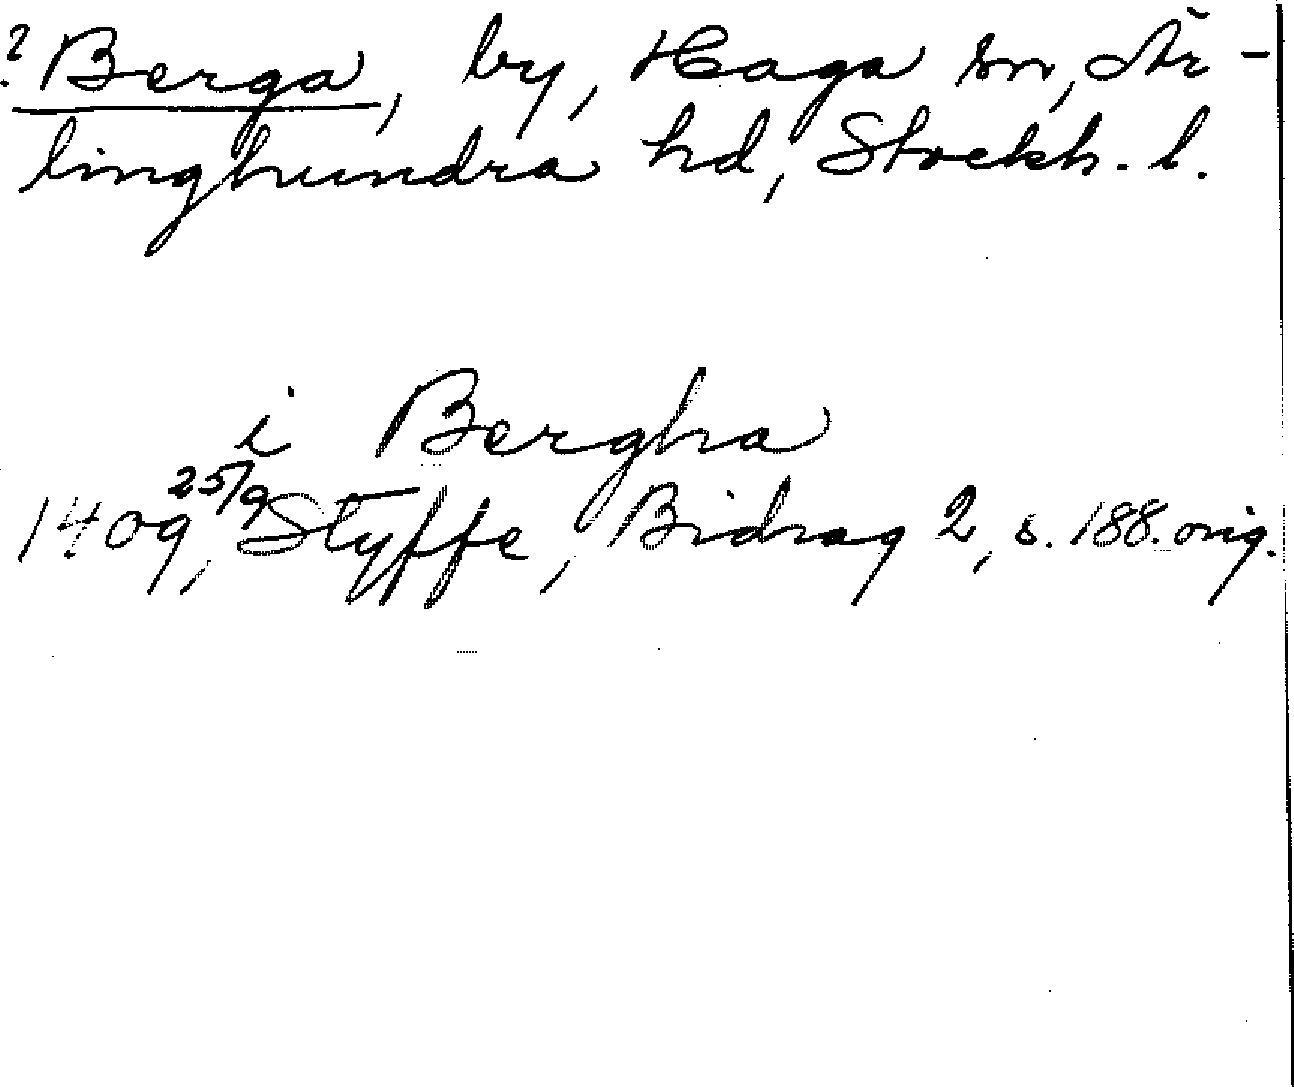 ? Berga, by, Haga sn, Är-
linghundra hd, Stockh. l.
i Bergha
1409 25/9, Styffe, Bidrag 2, s. 188. orig.